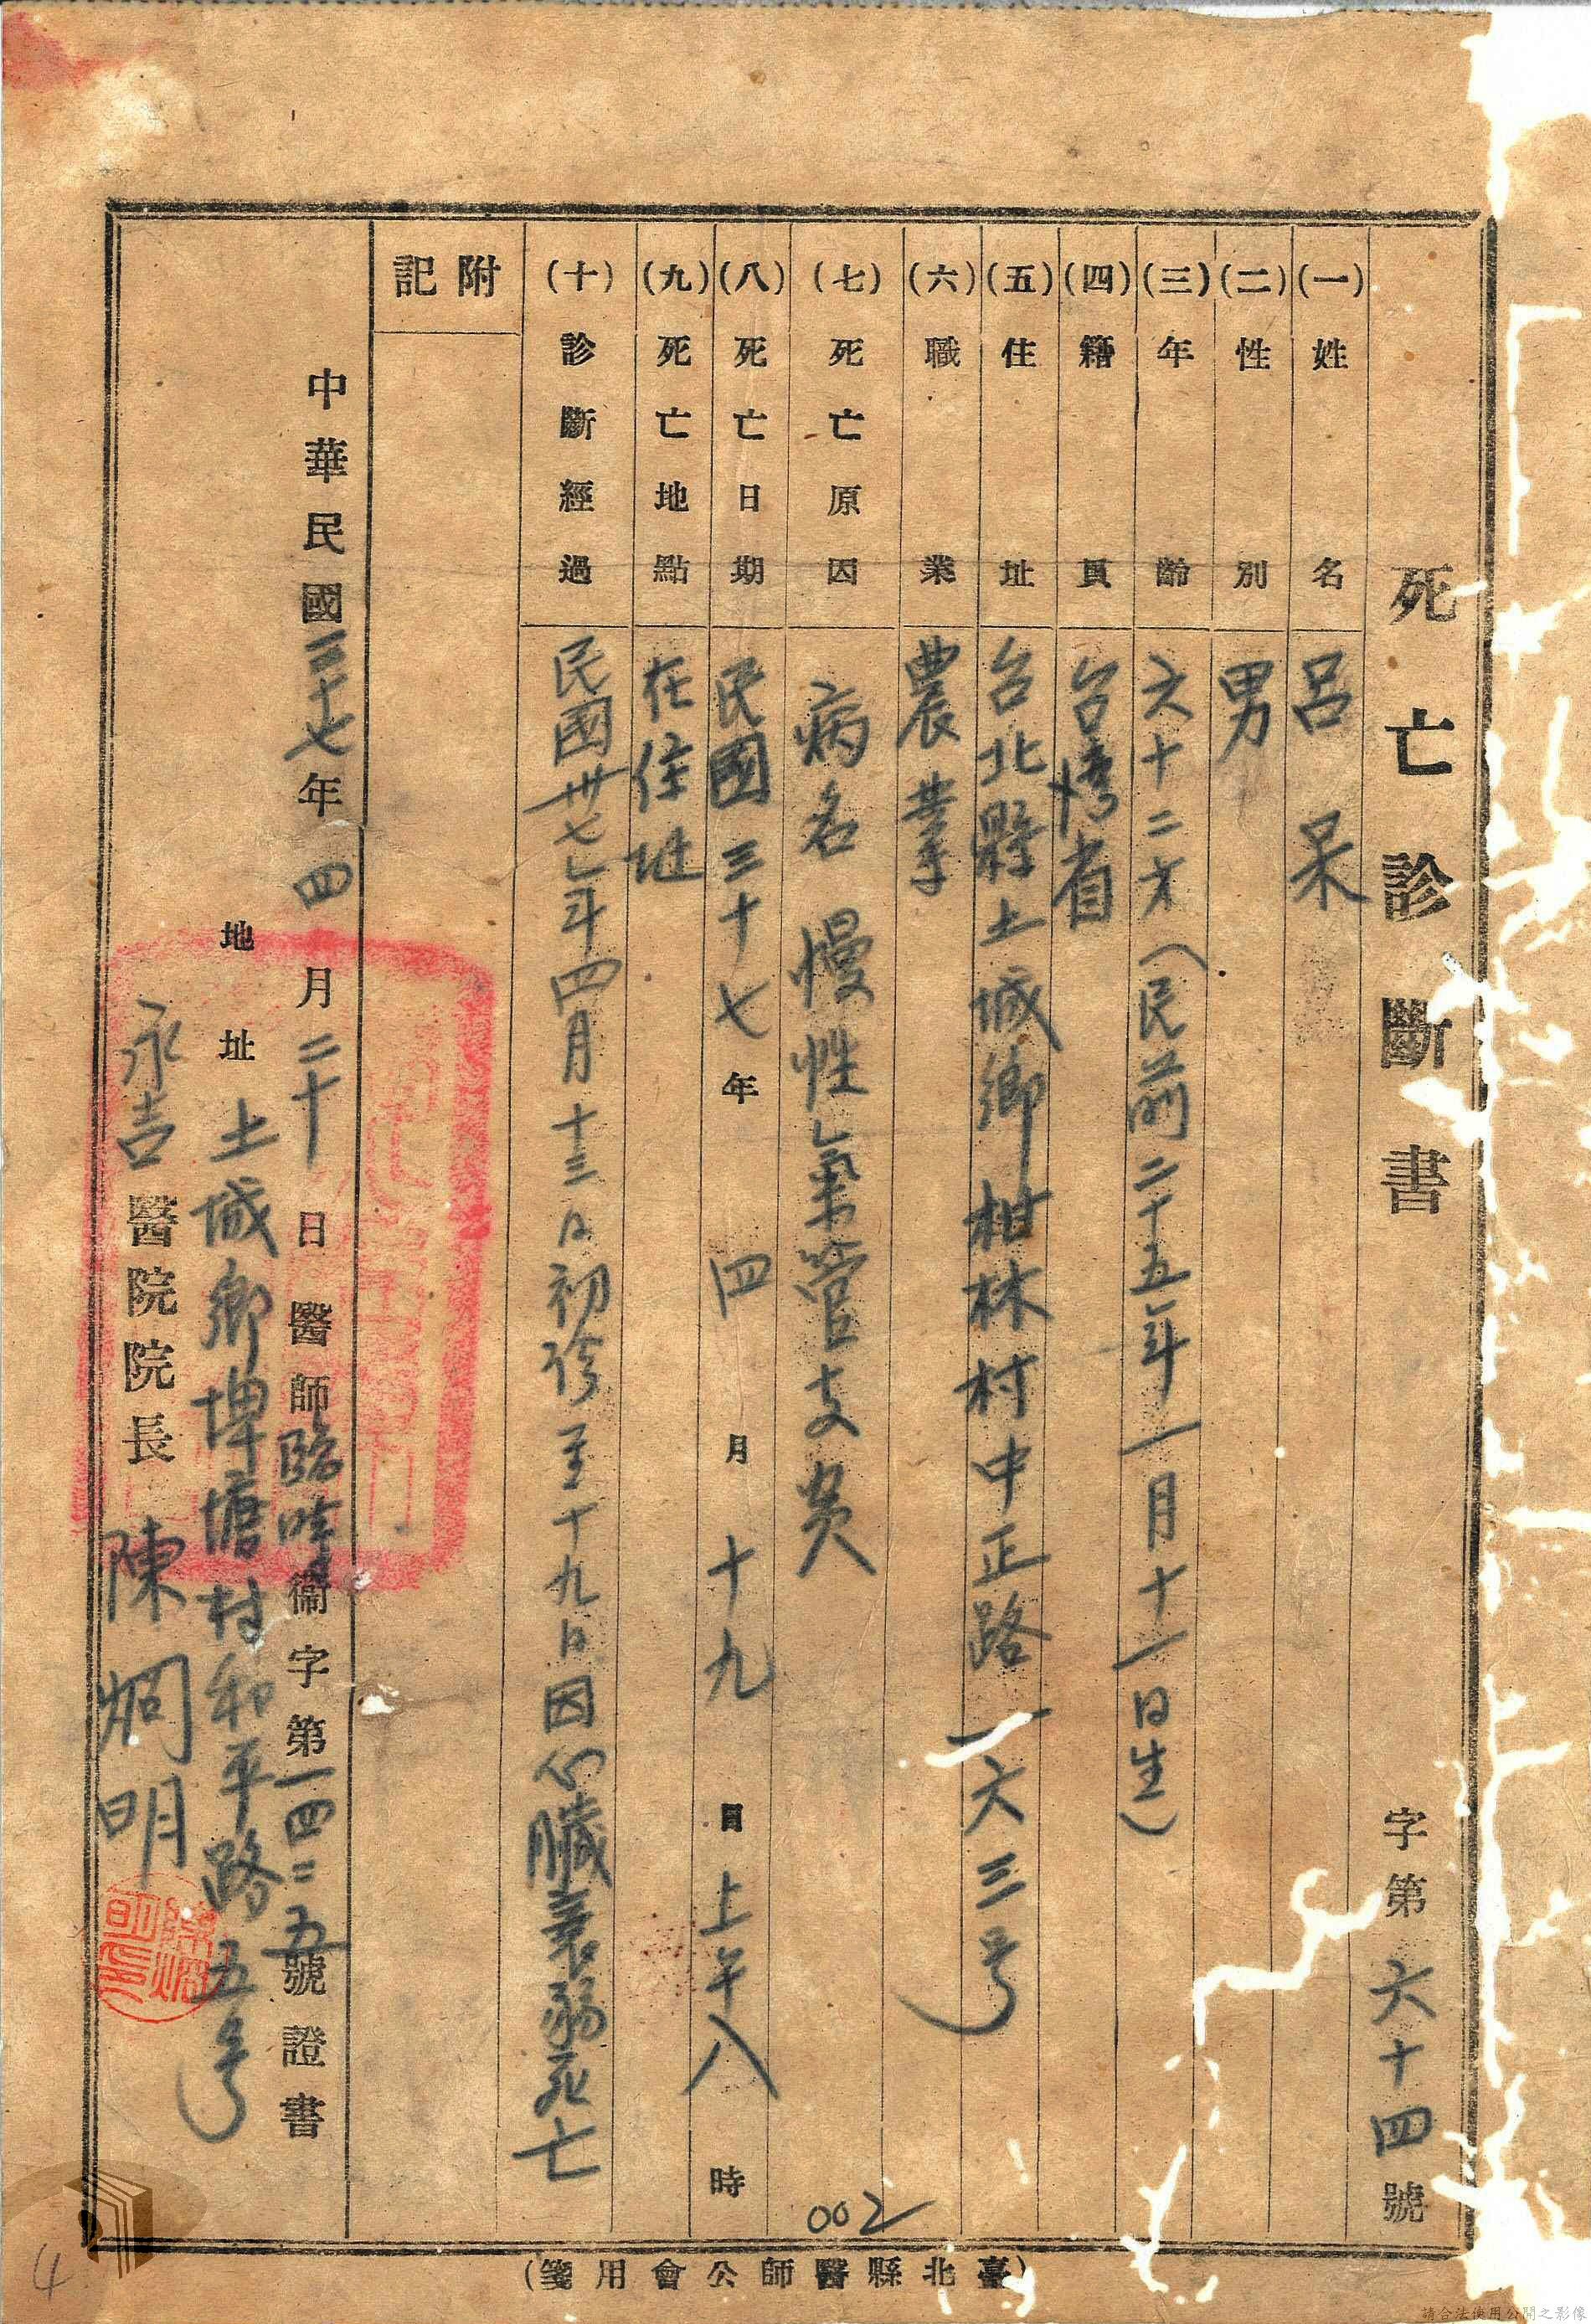 死亡診斷書
字第六十四號
(一)姓名 呂呆
(二)性別 男
(三)年齡 六十二才(民前二十五年一月十一日生)
(四)籍貫 台湾省
(五)住址 台北縣土城鄉柑林村中正路一六三号
(六)職業 農業
(七)死亡原因 病名 慢性氣管支炎
(八)死亡日期 民國三十七年四月十九日上午八時
(九)死亡地點 在住址
(十)診斷經過 民國卅七年四月十三日初診至十九日因心臟衰弱死亡
附記
中華民國三十七年四月二十日醫師臨時衛字第一四二五號證書
地址 土城鄉埤塘村和平路五号
永吉醫院院長 陳炯明
002
(臺北縣醫師公會用箋)
4
請合法使用公開之影像